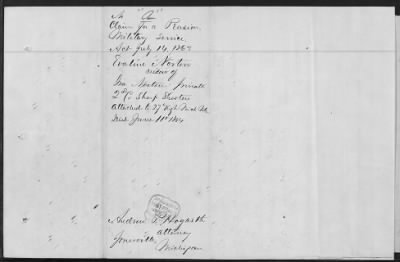 "A"
Claim for a Pension
Military Service
Act July 14, 1862
Evaline Norton
widow of
Ira Norton Private
2d Co Sharp Shooters
attached to 27 Regt Mich Vol
Died June 11 1864
Andrew P. Hogarth
attorney
Jonesville
Michigan